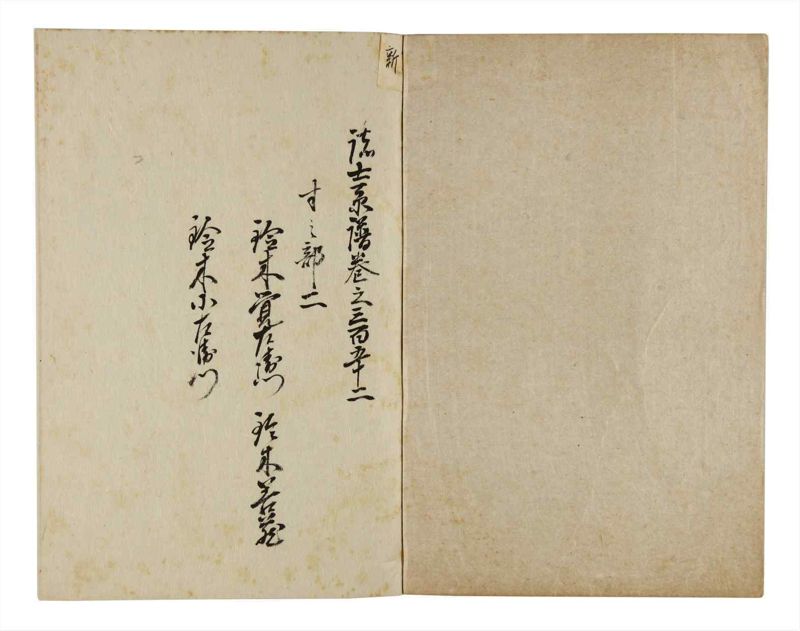 新
諸士系譜巻之三百五十二
すノ部二
鈴木覚左衛門　鈴木善蔵
鈴木小左衛門